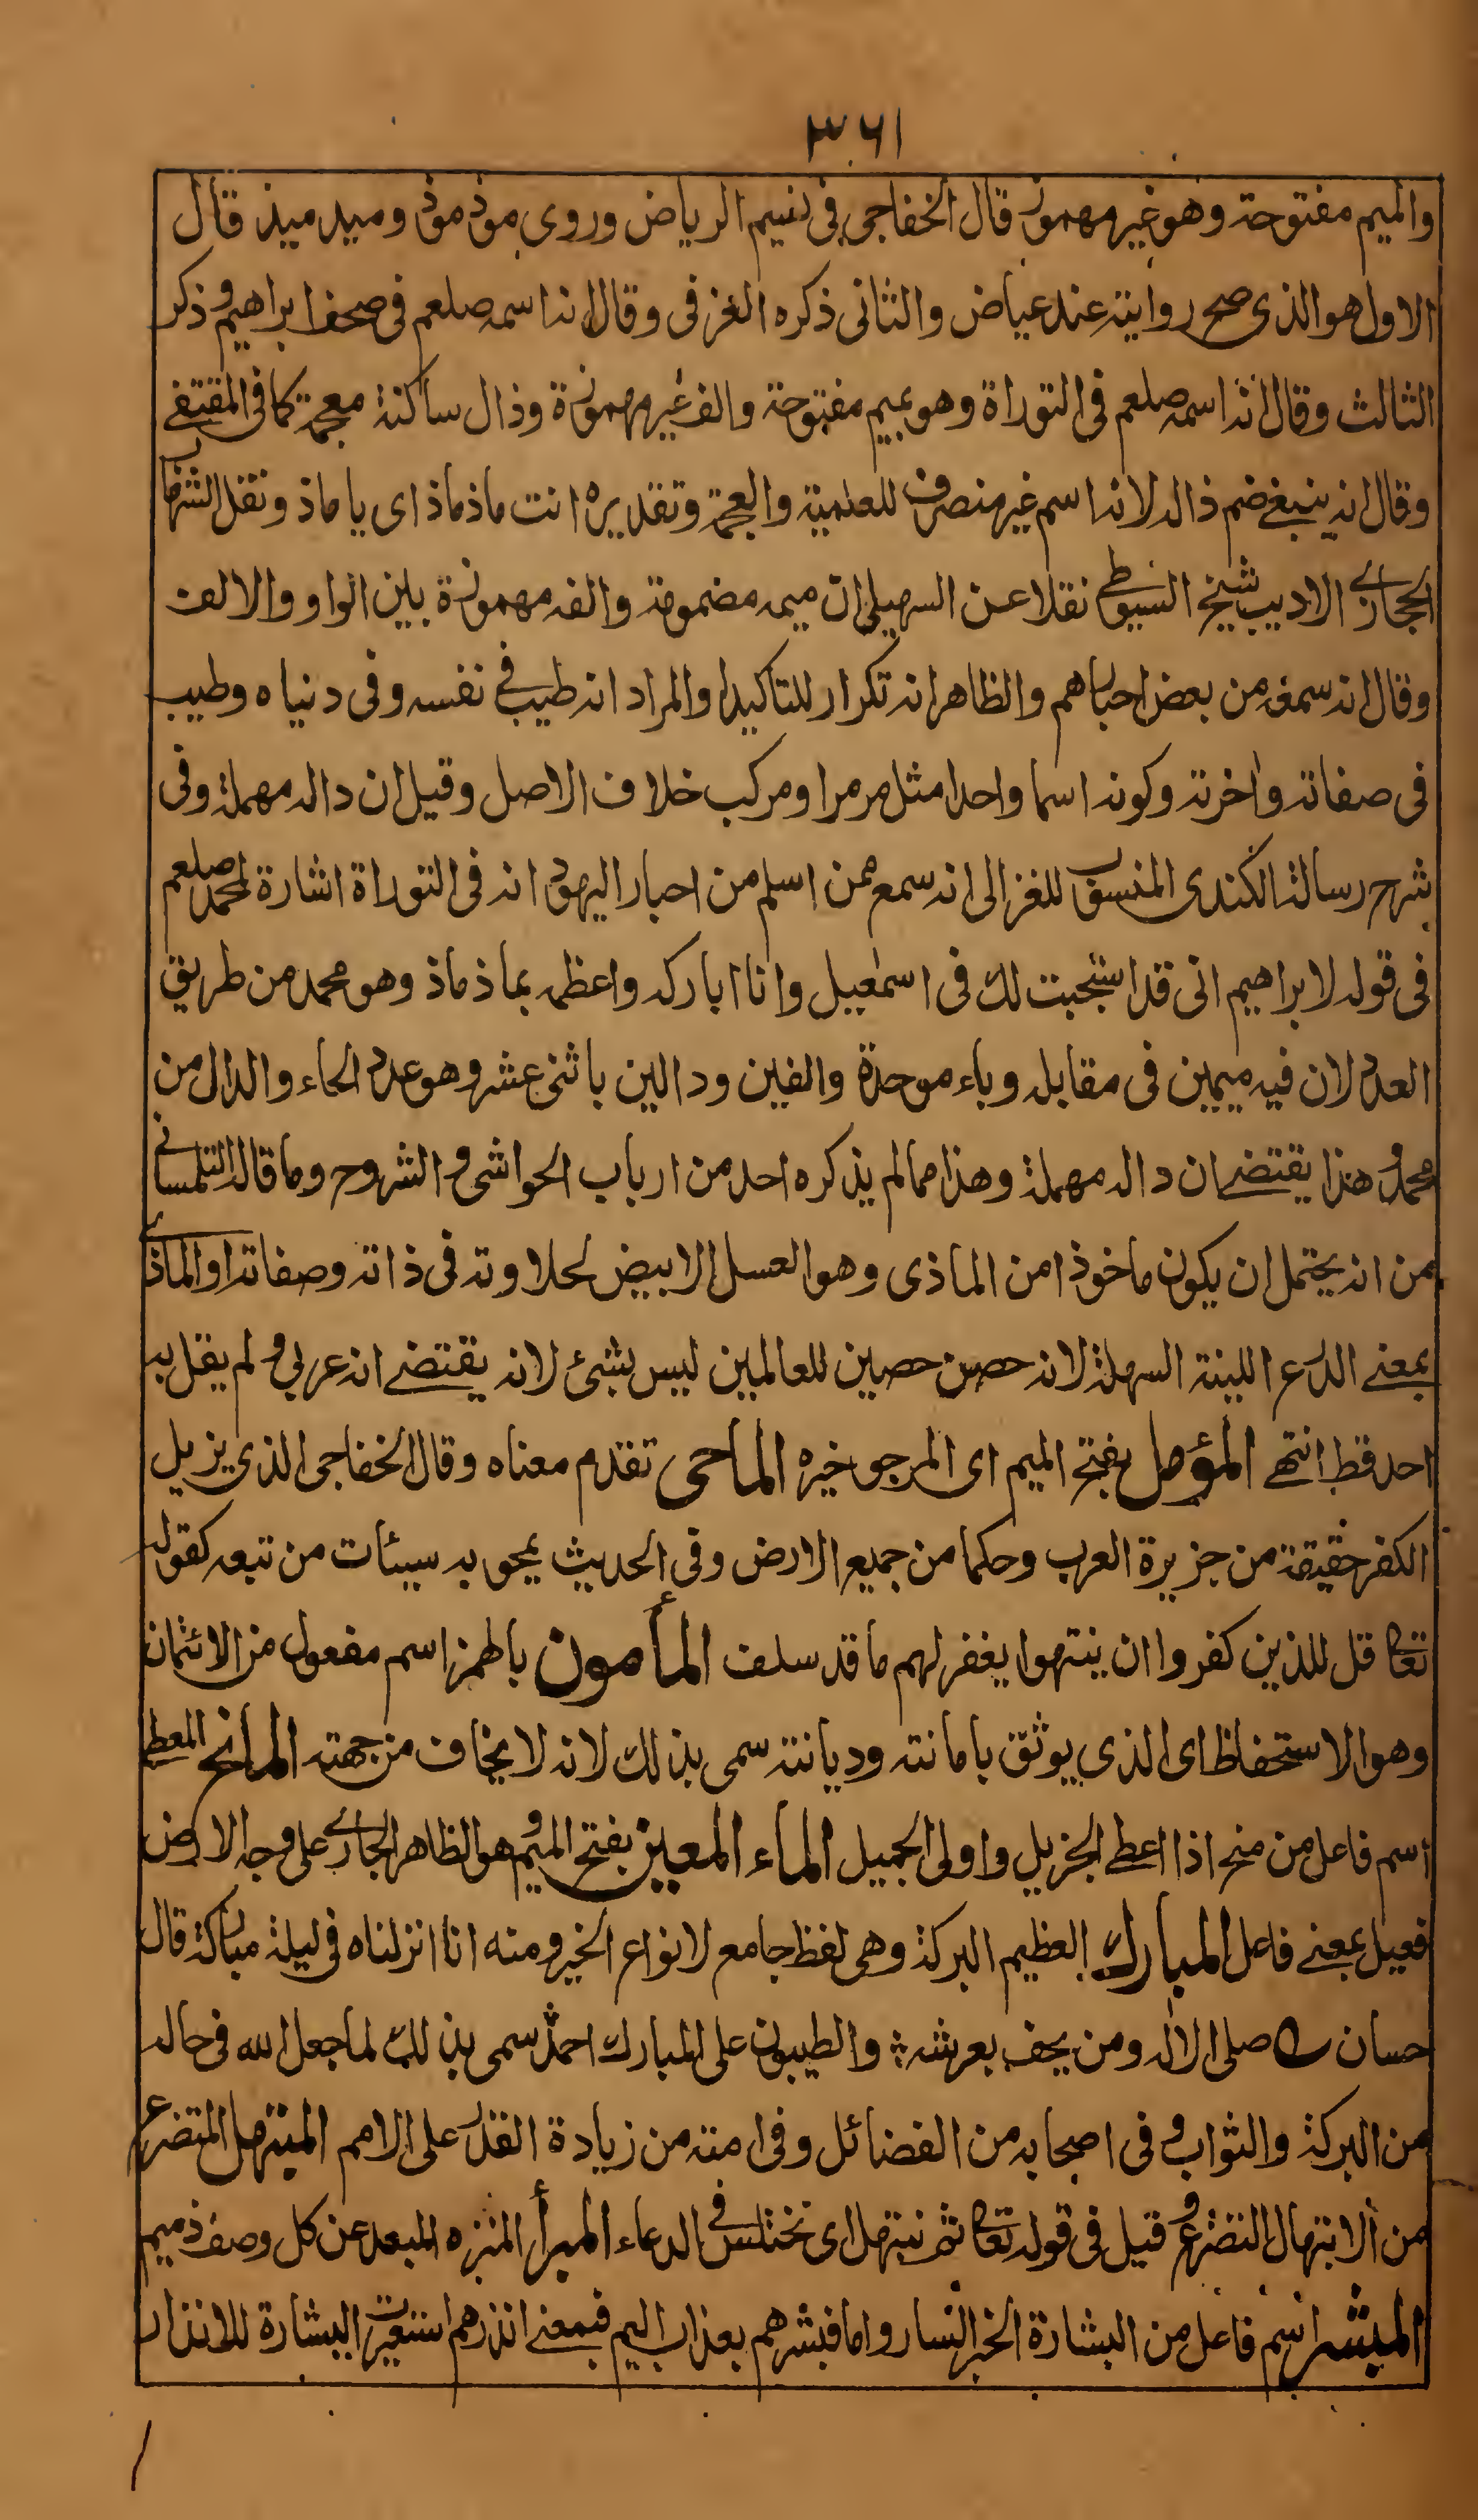 ٣٦١
والميم مفتوحة وهو غير مهموز قال الخفاجى فى نسيم الرياض وروى موذ موذ وميد ميذ قال
الاول هو الذى صح روايته عند عياض والثانى ذكره العزفى وقال انه اسمه صلعم فى صحف ابراهيم وذكر
الثالث وقال انه اسمه صلعم فى التوراة وهو بميم مفتوحة والف غير مهموزة وذال ساكنة معجمة كما فى المقتفى
وقال انه ينبغى ضم ذاله لانه اسم غير منصرف للعلمية والعجمة وتقديره انت ماذ ماذ اى يا ماذ ونقل الشهاب
الحجازى الاديب شيخ السيوطى نقلا عن السهيلى ان ميمه مضمومة والفه مهموزة بين الواو والالف
وقال انه سمعه من بعض احبارهم والظاهر انه تكرار للتاكيد او المراد انه طيب فى نفسه وفى دنياه وطيب
فى صفاته واخرته وكونه اسما واحدا مثل مرمر او مركب خلاف الاصل وقيل ان داله مهملة وفى
شرح رسالة الكندى المنسوب للغزالى انه سمع ممن اسلم من احبار اليهود انه فى التوراة اشارة لمحمد صلعم
فى قوله لابراهيم انى قد استجبت لك فى اسمعيل وانا اباركه واعظمه بماذ ماذ وهو محمد من طريق
العدد لان فيه ميمين فى مقابله وباء موحدة والفين ودالين باثنى عشر وهو عدد الحاء والدال من
محمد وهذا يقتضى ان داله مهملة وهذا مما لم يذكره احد من ارباب الحواشى و الشروح وما قاله التلمسانى
من انه يحتمل ان يكون ماخوذا من الماذى وهو العسل الابيض لحلاوته فى ذاته وصفاته او الماذى
بمعنى الدرع اللينة السهلة لانه حصن حصين للعالمين ليس بشئ لانه يقتضى انه عربى و لم يقل به
احد قط انتهى المؤمل بفتح الميم اى المرجو خيره الماحى تقدم معناه وقال الخفاجى الذى يزيل
الكفر حقيقة من جزيرة العرب وحكما من جميع الارض وفى الحديث يمحو به سيئات من تبعه كقوله
تعا قل للذين كفروا ان ينتهوا يغفر لهم ما قد سلف المأمون بالهمز اسم مفعول من الائتمان
وهو الاستحفاظ اى الذى يوثق بامانته وديانته سمى بذلك لانه لا يخاف من جهته المانح المعطى
اسم فاعل من منح اذا اعطى الجزيل واولى الجميل الماء المعين بفتح الميم وهو الظاهر الجارى على وجه الارض
فعيل بمعنى فاعل المبارك العظيم البركة وهى لفظ جامع لانواع الخير ومنه انا انزلناه فى ليلة مباركة قال
حسان صلى الاله ومن يحف بعرشه ؛ والطيبون على المبارك احمد سمى بذلك لما جعل الله فى حاله
من البركة والثواب و فى اصحابه من الفضائل وفى امته من زيادة القدر على الامم المبتهل المتضرع
من الابتهال التضرع و قيل فى قوله تعا ثم نبتهل اى نختلس فى الدعاء المبرأ المنزه المبعد عن كل وصف ذميم
المبشر اسم فاعل من البشارة الخبر السار واما فبشرهم بعذاب اليم فبمعنى انذرهم استعيرت البشارة للانذار